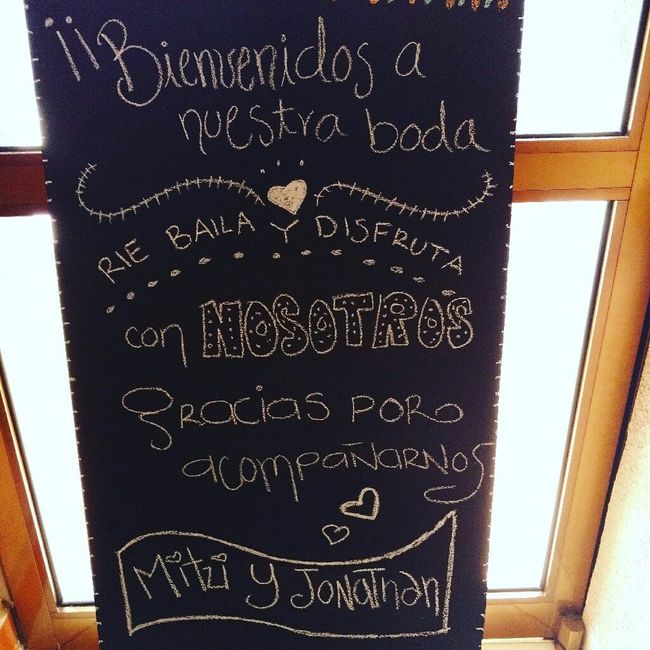 ¡¡Bienvenidos a
nuestra boda
RIE BAILA Y DISFRUTA
con NOSOTROS
gracias por
acompañarnos
Mitzi y Jonathan